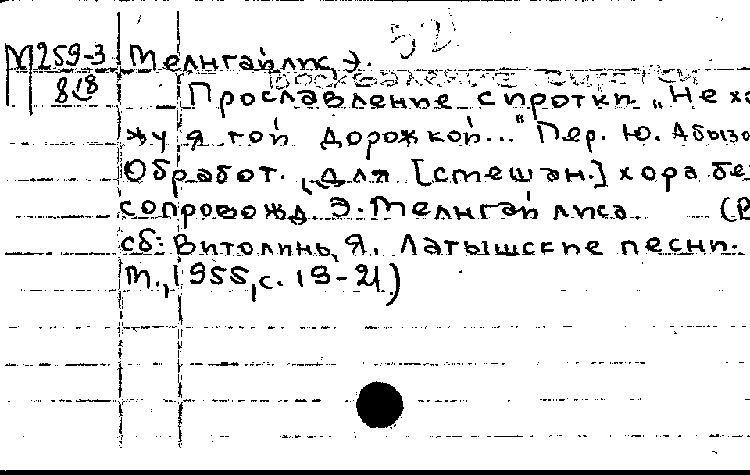 52
М259-3 Мелнгайлис, Э.
восхваление сиротки
818 Прославление сиротки. „Не хо
жу я той дорожкой..." Пер. Ю. Абызо
Обработ. для [смешан.] хора без
сопровожд. Э. Мелнгайлиса. (В
сб: Витолинь, Я. Латышские песни.
М., 1955, с. 19-21)